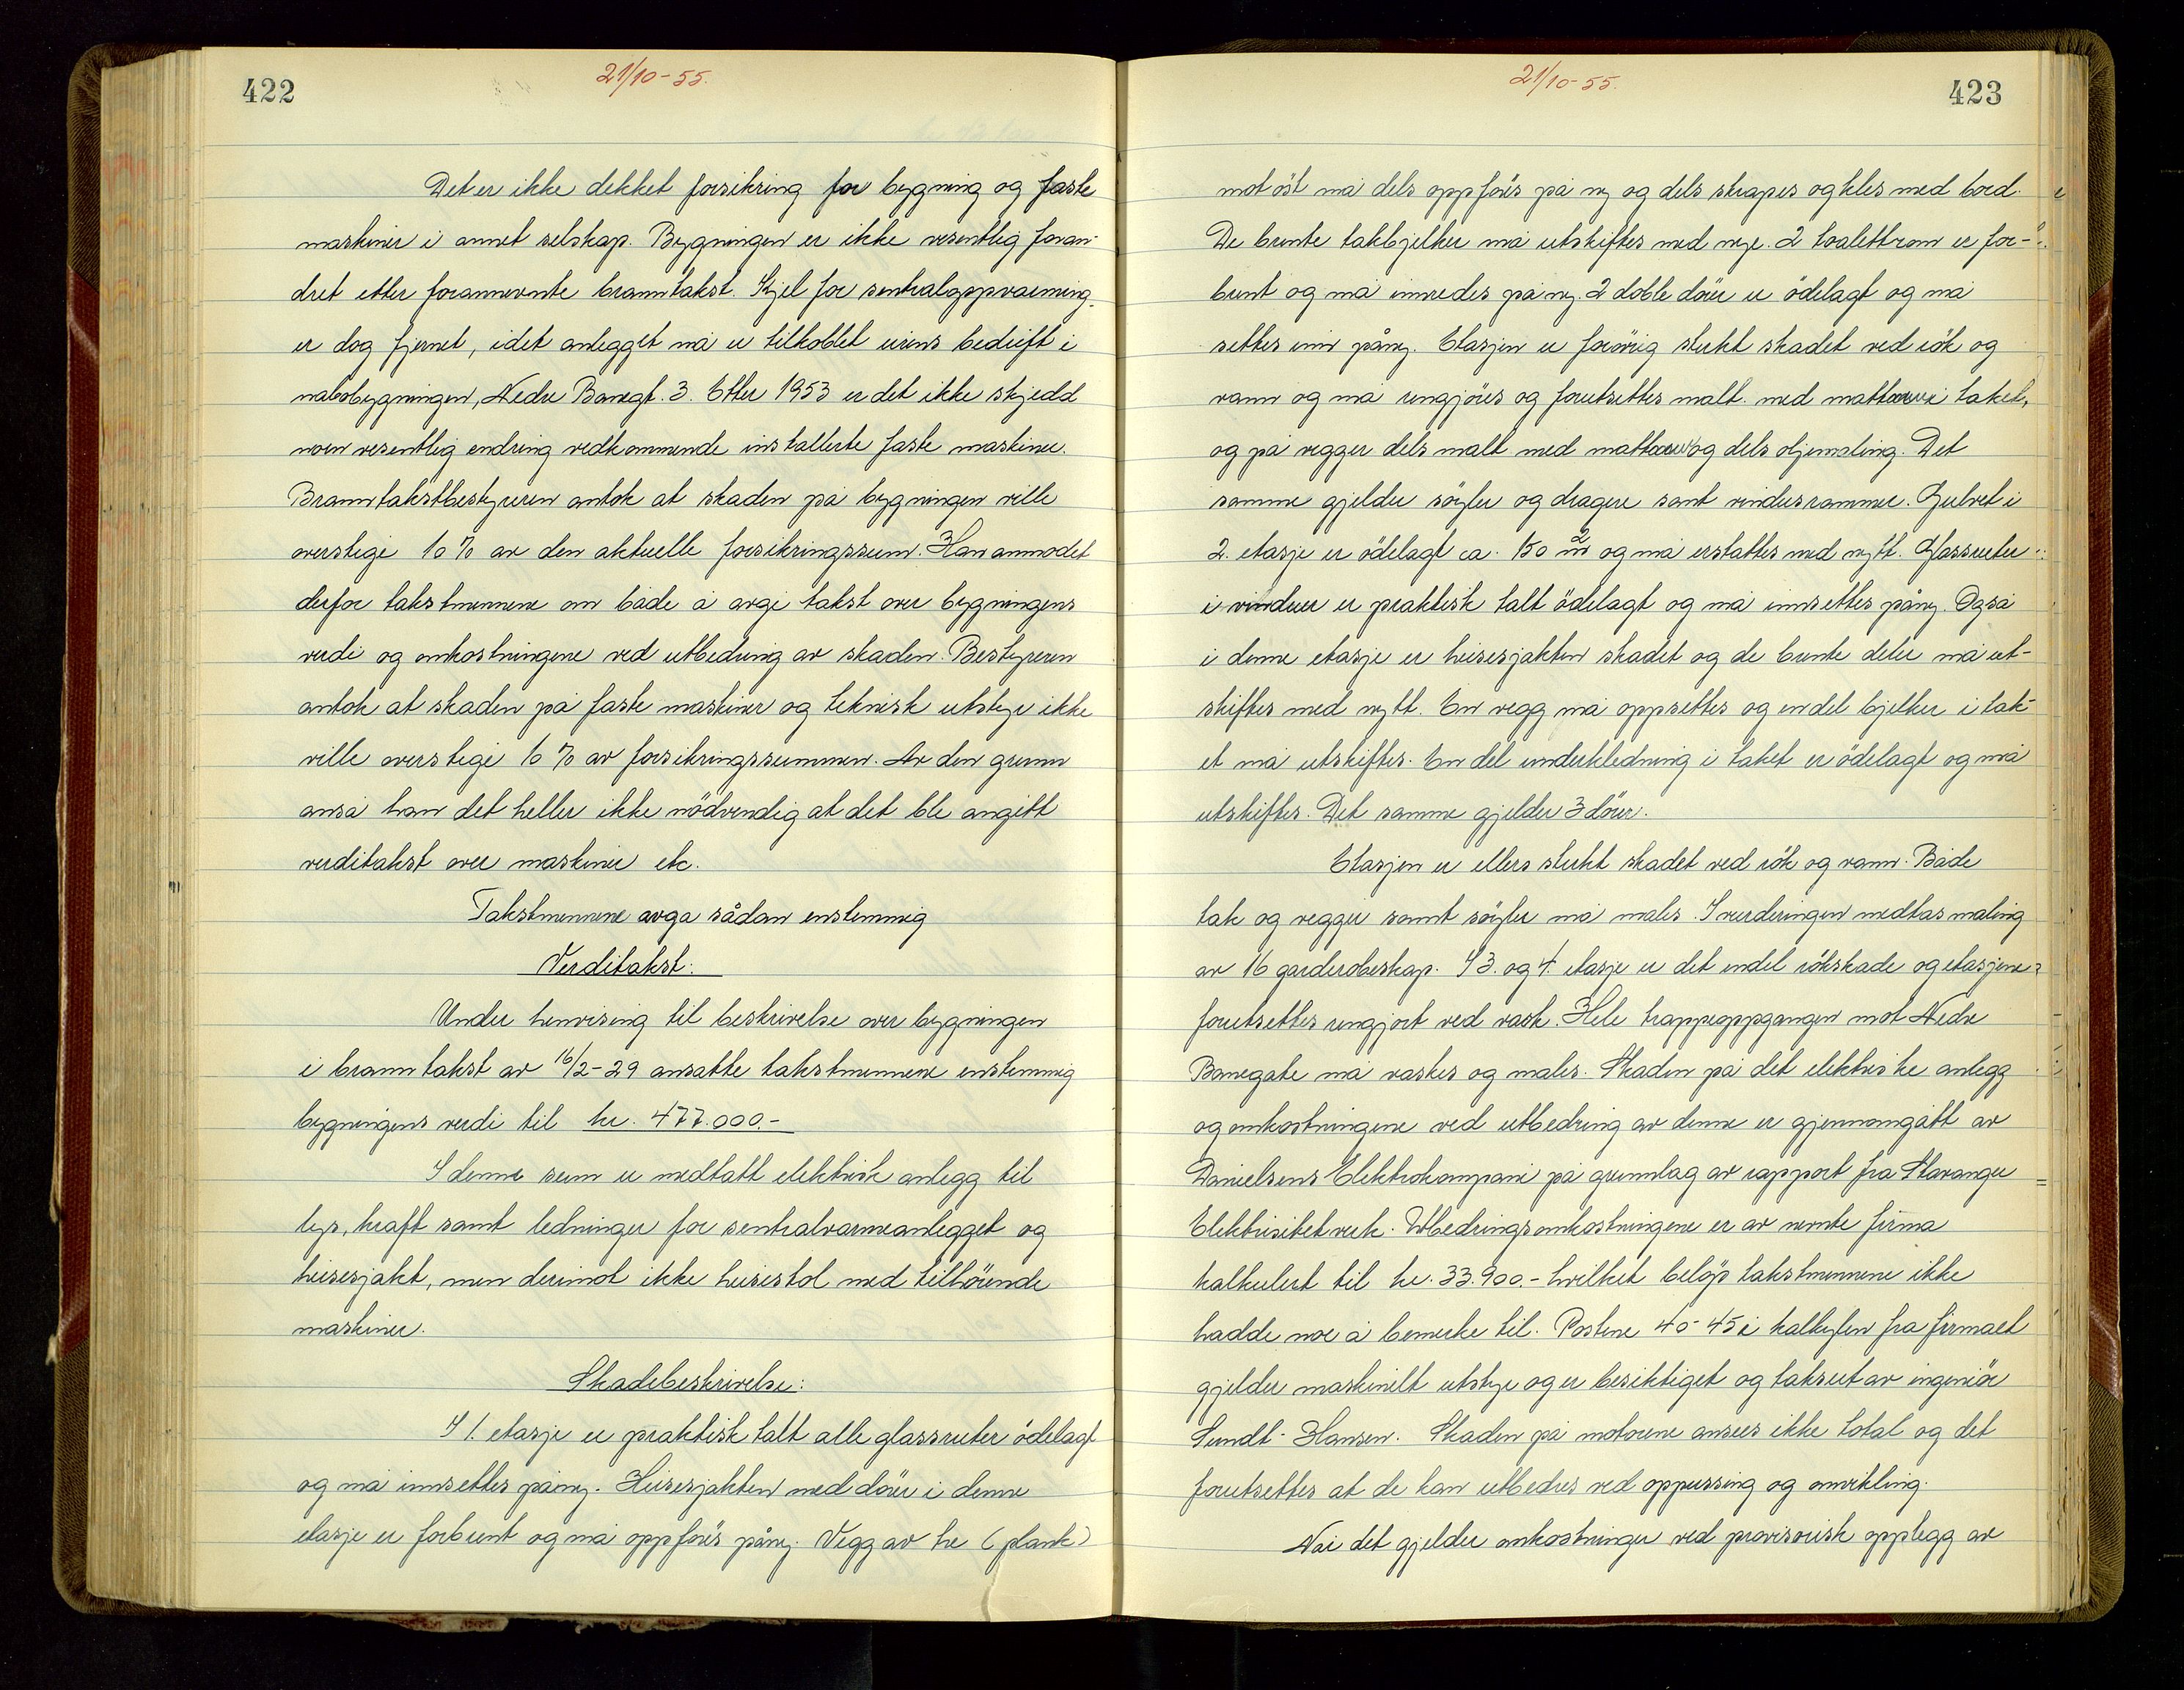 422
21/10-55.
Det er ikke dekket forsikring for bygning og faste
maskiner i annet selskap. Bygningen er ikke vesentlig foran-
dret etter forannevnte branntakst. Kjel for sentraloppvarming
er dog fjernet, idet anlegget nå er tilkoblet eirens bedrift i
nabobygningen, Nedre Banegt. 3. Etter 1953 er det ikke skjedd
noen vesentlig endring vedkommende installerte faste maskiner.
Branntakstbestyreren antok at skaden på bygningen ville
overstige 10 % av den aktuelle forsikringssum. Han anmodet
derfor takstmennene om både å avgi takst over bygningens
verdi og omkostningene ved utbedring av skaden. Bestyreren
antok at skaden på faste maskiner og teknisk utstyr ikke
ville overstige 10 % av forsikringssummen. Av den grunn
anså han det heller ikke nödvendig at det ble angitt
verditakst over maskiner etc.
Takstmennene avga sådan enstemmig
Verditakst:
Under henvising til beskrivelse over bygningen
i branntakst av 16/2-29 ansatte takstmennene enstemmig
bygningens verdi til kr. 477.000.-
I denne sum er medtatt elektrisk anlegg til
lys, kraft samt ledninger for sentralvarmeanlegget og
heisesjakt, men derimot ikke heisestol med tilhörende
maskiner.
Skadebeskrivelse:
I 1. etasje er praktisk talt alle glassruter ödelagt
og må innsettes påny. Heisesjakten med dörer i denne
etasje er forbrent og må oppföres påny. Vegg av tre (plank)
21/10-55.
423
mot öst må dels oppföres på ny og dels skrapes og kles med bord.
De brente takbjelker må utskiftes med nye. 2 toalettrom er for-
brent og må innredes på ny. 2 doble dörer er ödelagt og må
settes inn påny. Etasjen er forövrig sterkt skadet ved rök og
vann og må rengjöres og forutsettes malt med mattcerve i taket,
og på vegger dels malt med og dels oljemaling. Det
samme gjelder söyler og dragere samt vindusrammer. Gulvet i
2. etasje er ödelagt ca. 150 m2 og må erstattes med nytt. Glassruter
i vinduer er praktisk talt ödelagt og må innsettes påny. Også
i denne etasje er heisesjakten skadet og de brente deler må ut-
skiftes med nytt. En vegg må oppsettes og endel bjelker i tak-
et må utskiftes. En del underkledning i taket er ödelagt og må
utskiftes. Det samme gjelder 3 dörer.
Etasjen er ellers sterkt skadet ved rök og vann. Både
tak og vegger samt söyler må males. I vurderingen medtas maling
av 16 garderobeskap. I 3. og 4. etasje er det endel rökskade og etasjene
forutsettes rengjort ved vask. Hele trappeoppgangen mot Nedre
Banegate må vaskes og males. Skaden på det elektriske anlegg
og omkostningene ved utbedring av denne er gjennomgått av
Danielsens Elektrokompani på grunnlag av rapport fra Stavanger
Elektrisitetverk. Utbedringsomkostningene er av nevnte firma
kalkulert til kr. 33.900.- hvilket belöp takstmennene ikke
hadde noe å bemerke til. Postene 40-45 i kalkylen fra firmaet
gjelder maskinelt utstyr og er besiktiget og taksert av ingeniör
Sundt-Hansen. Skaden på motorene ansees ikke total og det
forutsettes at de kan utbedres ved oppussing og omvikling.
Når det gjelder omkostninger ved provisorisk opplegg av